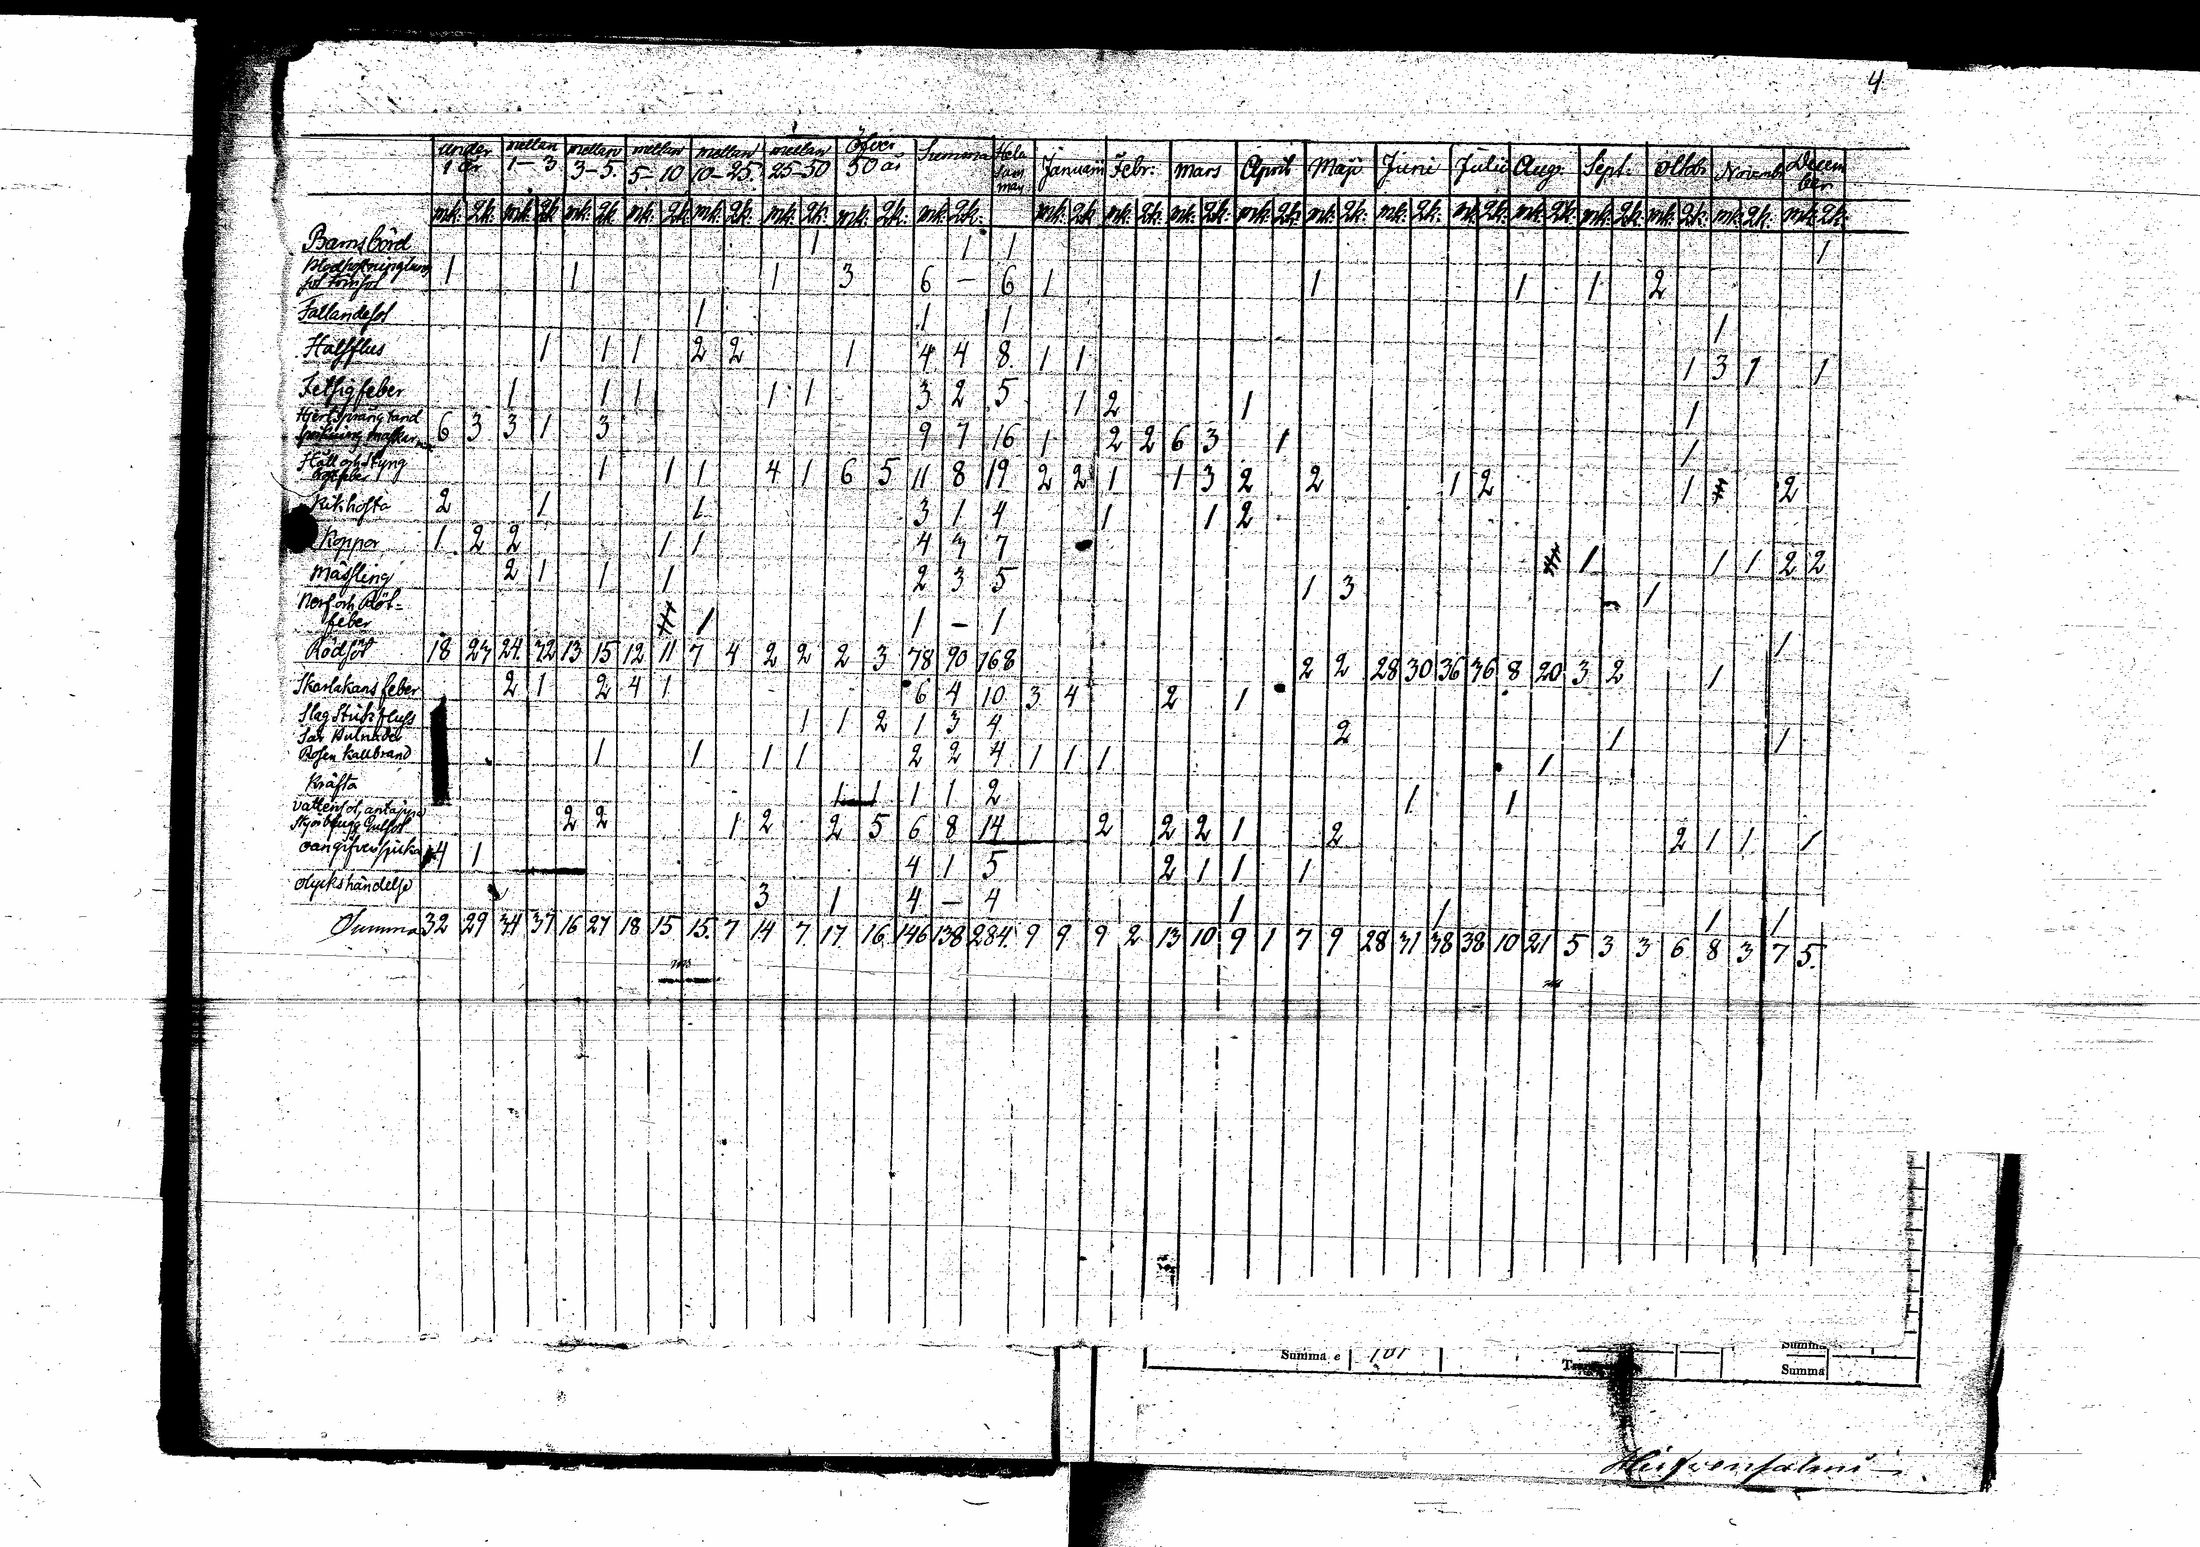 4
under 1 år mellan 1-3 mellan 3-5. mellan 5-10 mellan 10-25. mellan 25-50 Öfver 50 år Summa Hela Januari Febr: Mars April Maji Juni Julii Aug. Sept: Octob: Novemb: December
mk. 2k. mk. 2k. mk. 2k. mk. 2k. mk. 2k. mk. 2k. mk. 2k. mk. 2k. mk. 2k. mk. 2k. mk. 2k. mk. 2k. mk. 2k. mk. 2k. mk. 2k. mk. 2k. mk. 2k. mk. 2k. mk. 2k. mk. 2k.
Barnsbörd 1 1 1 1
1 1 1 3 6 — 6 1 1 1 1 2
Fallandesot 1 1 1 1
Halsflus 1 1 1 2 2 1 4 4 8 1 1 1 3 1 1
Hetsigfeber 1 1 1 1 1 3 2 5 1 2 1 1
6 3 3 1 3 9 7 16 1 2 2 6 3 1 1
Håll och Styng 1 1 1 4 1 6 5 11 8 19 2 2 1 1 3 2 2 1 2 1 2
Kikhosta 2 1 1 3 1 4 1 1 2
Koppor 1 2 2 1 1 4 3 7 1 1 1 2 2
Mässling 2 1 1 1 2 3 5 1 3 1
Nerf och Röt-
feber 1 1 — 1 1
Rödsot 18 23 24 32 13 15 12 11 7 4 2 2 2 3 78 90 168 2 2 28 30 36 36 8 20 3 2 1
Skarlakans feber 2 1 2 4 1 6 4 10 3 4 2 1
Slag Stickfluss 1 1 2 1 3 4 2 1 1
Rosen Kallbrand 1 1 1 1 2 2 4 1 1 1 1
Kräfta 1 1 1 1 2 1 1
2 2 1 2 2 5 6 8 14 2 2 2 1 2 2 1 1 1
4 1 4 1 5 2 1 1 1
Olyckshändelse 3 1 4 — 4 1 1 1 1
Summa 32 29 34 37 16 27 18 15 15. 7 14 7 17 16 146 138 284. 9 9 9 2 13 10 9 1 7 9 28 31 38 38 10 21 5 3 3 6 8 3 7 5.
Summa e 101 Summa
Summa